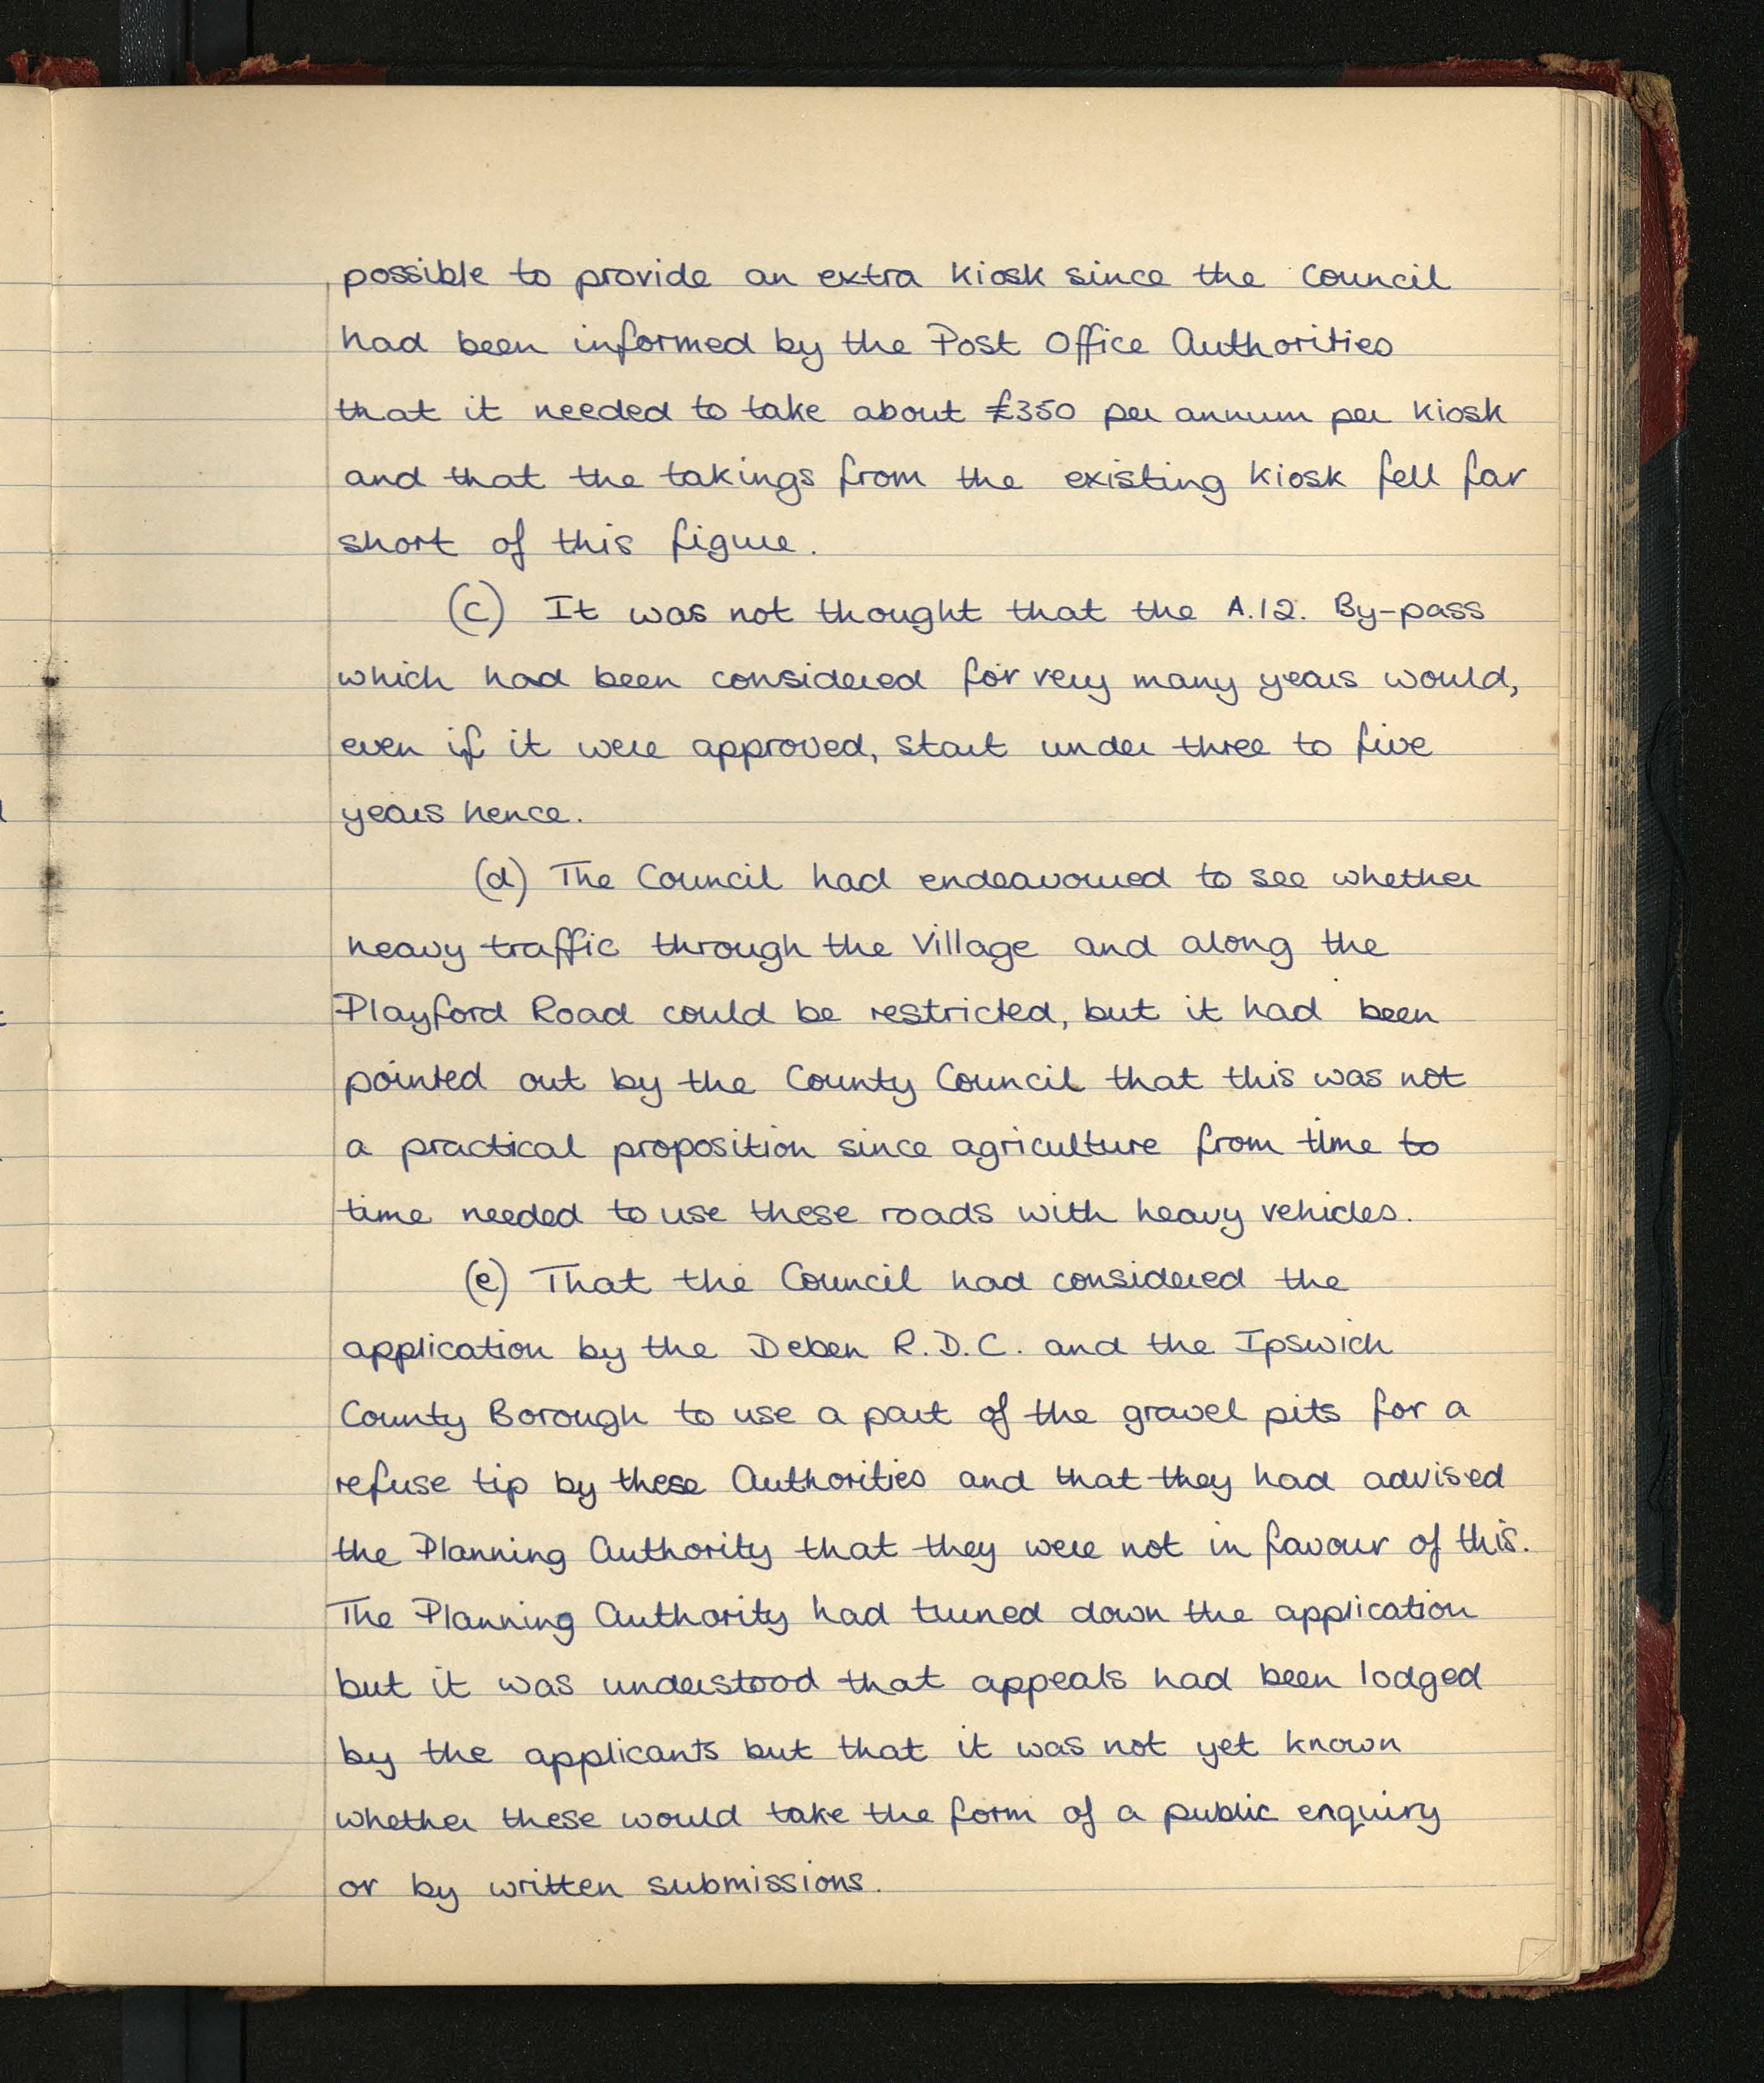 possible to provide an extra kiosk since the Council
had been informed by the Post Office Authorities
that it needed to take about £350 per annum per kiosk
and that the takings from the existing kiosk fell far
short of this figure.
(c) It was not thought that the A.12. By-pass
which had been considered for very many years would,
even if it were approved, start under three to five
years hence.
(d) The Council had endeavoured to see whether
heavy traffic through the Village and along the
Playford Road could be restricted, but it had been
pointed out by the County Council that this was not
a practical proposition since agriculture from time to
time needed to use these roads with heavy vehicles.
(e) That the Council had considered the
application by the Deben R.D.C. and the Ipswich
County Borough to use a part of the gravel pits for a
refuse tip by these Authorities and that they had advised
the Planning Authority that they were not in favour of this.
The Planning Authority had turned down the application
but it was understood that appeals had been lodged
by the applicants but that it was not yet known
whether these would take the form of a public enquiry
or by written submissions.